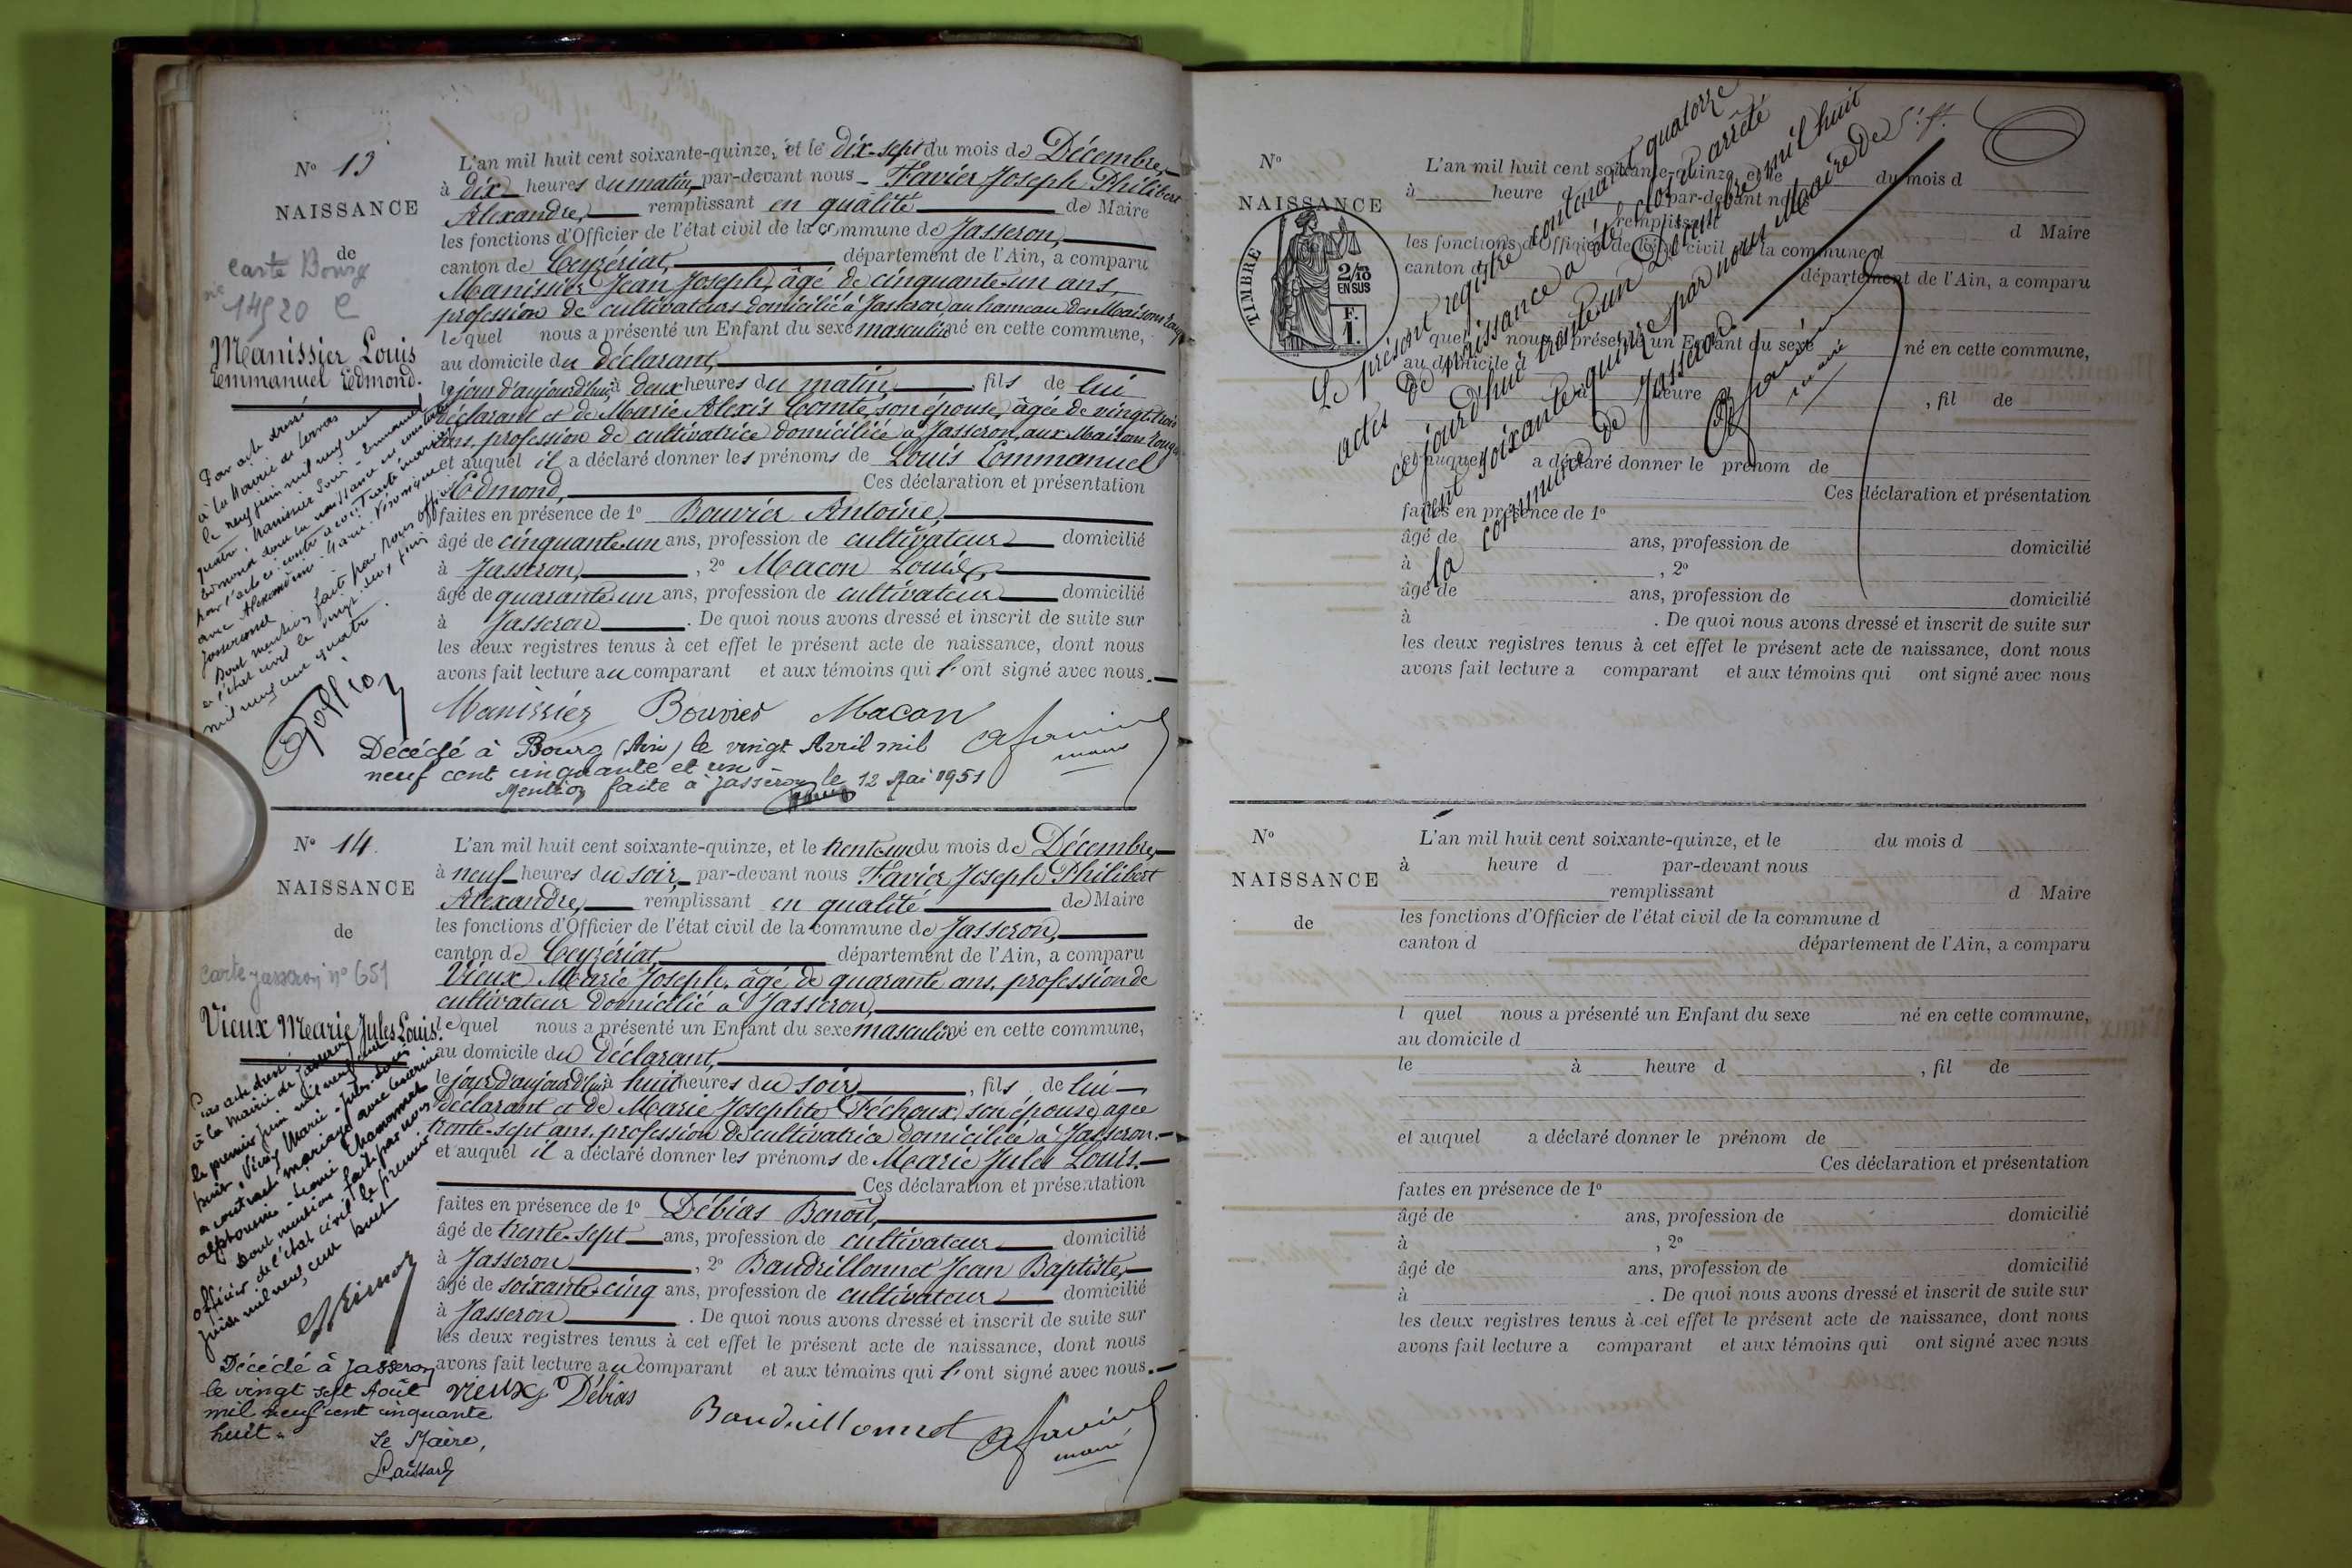 N° 13
NAISSANCE
de
Carte Bourg
n° 14520 C
Manissier Louis
Emmanuel Edmond.
L'an mil huit cent soixante-quinze, et le dix-sept du mois de Décembre,
à dix heures du matin, par-devant nous Favier Joseph Philibert
Alexandre, remplissant en qualité de Maire
les fonctions d'Officier de l'état civil de la commune de Jasseron,
canton de Ceyzériat, département de l'Ain, a comparu
Manissier Jean Joseph, âgé de cinquante-un ans
profession de cultivateur domicilié à Jasseron, au hameau des Maisons Rouges
lequel nous a présenté un Enfant du sexe masculin né en cette commune,
au domicile du déclarant,
le jour d'aujourd'hui à deux heures du matin, fils de lui
déclarant et de Marie Alexis Comte, son épouse, âgée de vingt-trois
ans, profession de cultivatrice domiciliée à Jasseron, aux Maisons Rouges
et auquel il a déclaré donner les prénoms de Louis Emmanuel
Edmond, Ces déclaration et présentation
faites en présence de 1° Bouvier Antoine,
âgé de cinquante-un ans, profession de cultivateur domicilié
à Jasseron, 2° Macon Louis,
âgé de quarante-un ans, profession de cultivateur domicilié
à Jasseron. De quoi nous avons dressé et inscrit de suite sur
les deux registres tenus à cet effet le présent acte de naissance, dont nous
avons fait lecture au comparant et aux témoins qui l'ont signé avec nous.
Manissier Bouvier Macon
maire
Par acte dressé
à la Mairie de
le neuf juin mil neuf cent
quatre, Manissier Louis-Emmanuel
Edmond dont la naissance est constatée
par l'acte ci-contre a contracté mariage
avec Alexandrine Marie Véronique
Josserand
Dont mention faite par nous officier
de l'état civil le vingt-deux juin
mil neuf cent quatre.
Décédé à Bourg (Ain) le vingt Avril mil
neuf cent cinquante et un
Mention faite à Jasseron le 12 Mai 1951
N° 14.
NAISSANCE
de
Carte Jasseron n° 651
Vieux Marie Jules Louis.
L'an mil huit cent soixante-quinze, et le trente-un du mois de Décembre,
à neuf heures du soir, par-devant nous Favier Joseph Philibert
Alexandre, remplissant en qualité de Maire
les fonctions d'Officier de l'état civil de la commune de Jasseron,
canton de Ceyzériat, département de l'Ain, a comparu
Vieux Marie Joseph, âgé de quarante ans, profession de
cultivateur domicilié à Jasseron,
lequel nous a présenté un Enfant du sexe masculin né en cette commune,
au domicile du déclarant,
le jour d'aujourd'hui à huit heures du soir, fils de lui
déclarant et de Marie Josephte Péchoux, son épouse, âgée
trente-sept ans, profession de cultivatrice domiciliée à Jasseron.
et auquel il a déclaré donner les prénoms de Marie Jules Louis.
Ces déclaration et présentation
faites en présence de 1° Débias Benoît,
âgé de trente-sept ans, profession de cultivateur domicilié
à Jasseron, 2° Baudrillonnet Jean Baptiste,
âgé de soixante-cinq ans, profession de cultivateur domicilié
à Jasseron. De quoi nous avons dressé et inscrit de suite sur
les deux registres tenus à cet effet le présent acte de naissance, dont nous
avons fait lecture au comparant et aux témoins qui l'ont signé avec nous.
vieux Débias
Baudrillonnet
maire
Par acte dressé
à la Mairie de Jasseron
le premier juin mil neuf cent
huit, Vieux Marie-Jules-Louis
a contracté mariage avec
alphonsine-Léonie
Dont mention faite par nous
officier de l'état civil le premier
juin mil neuf cent huit
Décédé à Jasseron
le vingt sept Août
mil neuf cent cinquante
huit.
Le Maire,
N°
NAISSANCE
TIMBRE
2/10 EN SUS
F.
1.
L'an mil huit cent soixante-quinze, et le du mois d
à heure d par-devant nous
remplissant d Maire
les fonctions d'Officier de l'état civil de la commune d
canton d département de l'Ain, a comparu
l quel nous a présenté un Enfant du sexe né en cette commune,
au domicile d
le à heure d , fil de
et auquel a déclaré donner le prénom de
Ces déclaration et présentation
faites en présence de 1°
âgé de ans, profession de domicilié
à , 2°
âgé de ans, profession de domicilié
à . De quoi nous avons dressé et inscrit de suite sur
les deux registres tenus à cet effet le présent acte de naissance, dont nous
avons fait lecture a comparant et aux témoins qui ont signé avec nous
Le présent registre contenant quatorze
actes de naissance a été clos et arrêté
ce jourd'hui trente-un Décembre mil huit
cent soixante-quinze par nous Maire de
la commune de Jasseron.
maire
N°
NAISSANCE
de
L'an mil huit cent soixante-quinze, et le du mois d
à heure d par-devant nous
remplissant d Maire
les fonctions d'Officier de l'état civil de la commune d
canton d département de l'Ain, a comparu
l quel nous a présenté un Enfant du sexe né en cette commune,
au domicile d
le à heure d , fil de
et auquel a déclaré donner le prénom de
Ces déclaration et présentation
faites en présence de 1°
âgé de ans, profession de domicilié
à , 2°
âgé de ans, profession de domicilié
à . De quoi nous avons dressé et inscrit de suite sur
les deux registres tenus à cet effet le présent acte de naissance, dont nous
avons fait lecture a comparant et aux témoins qui ont signé avec nous